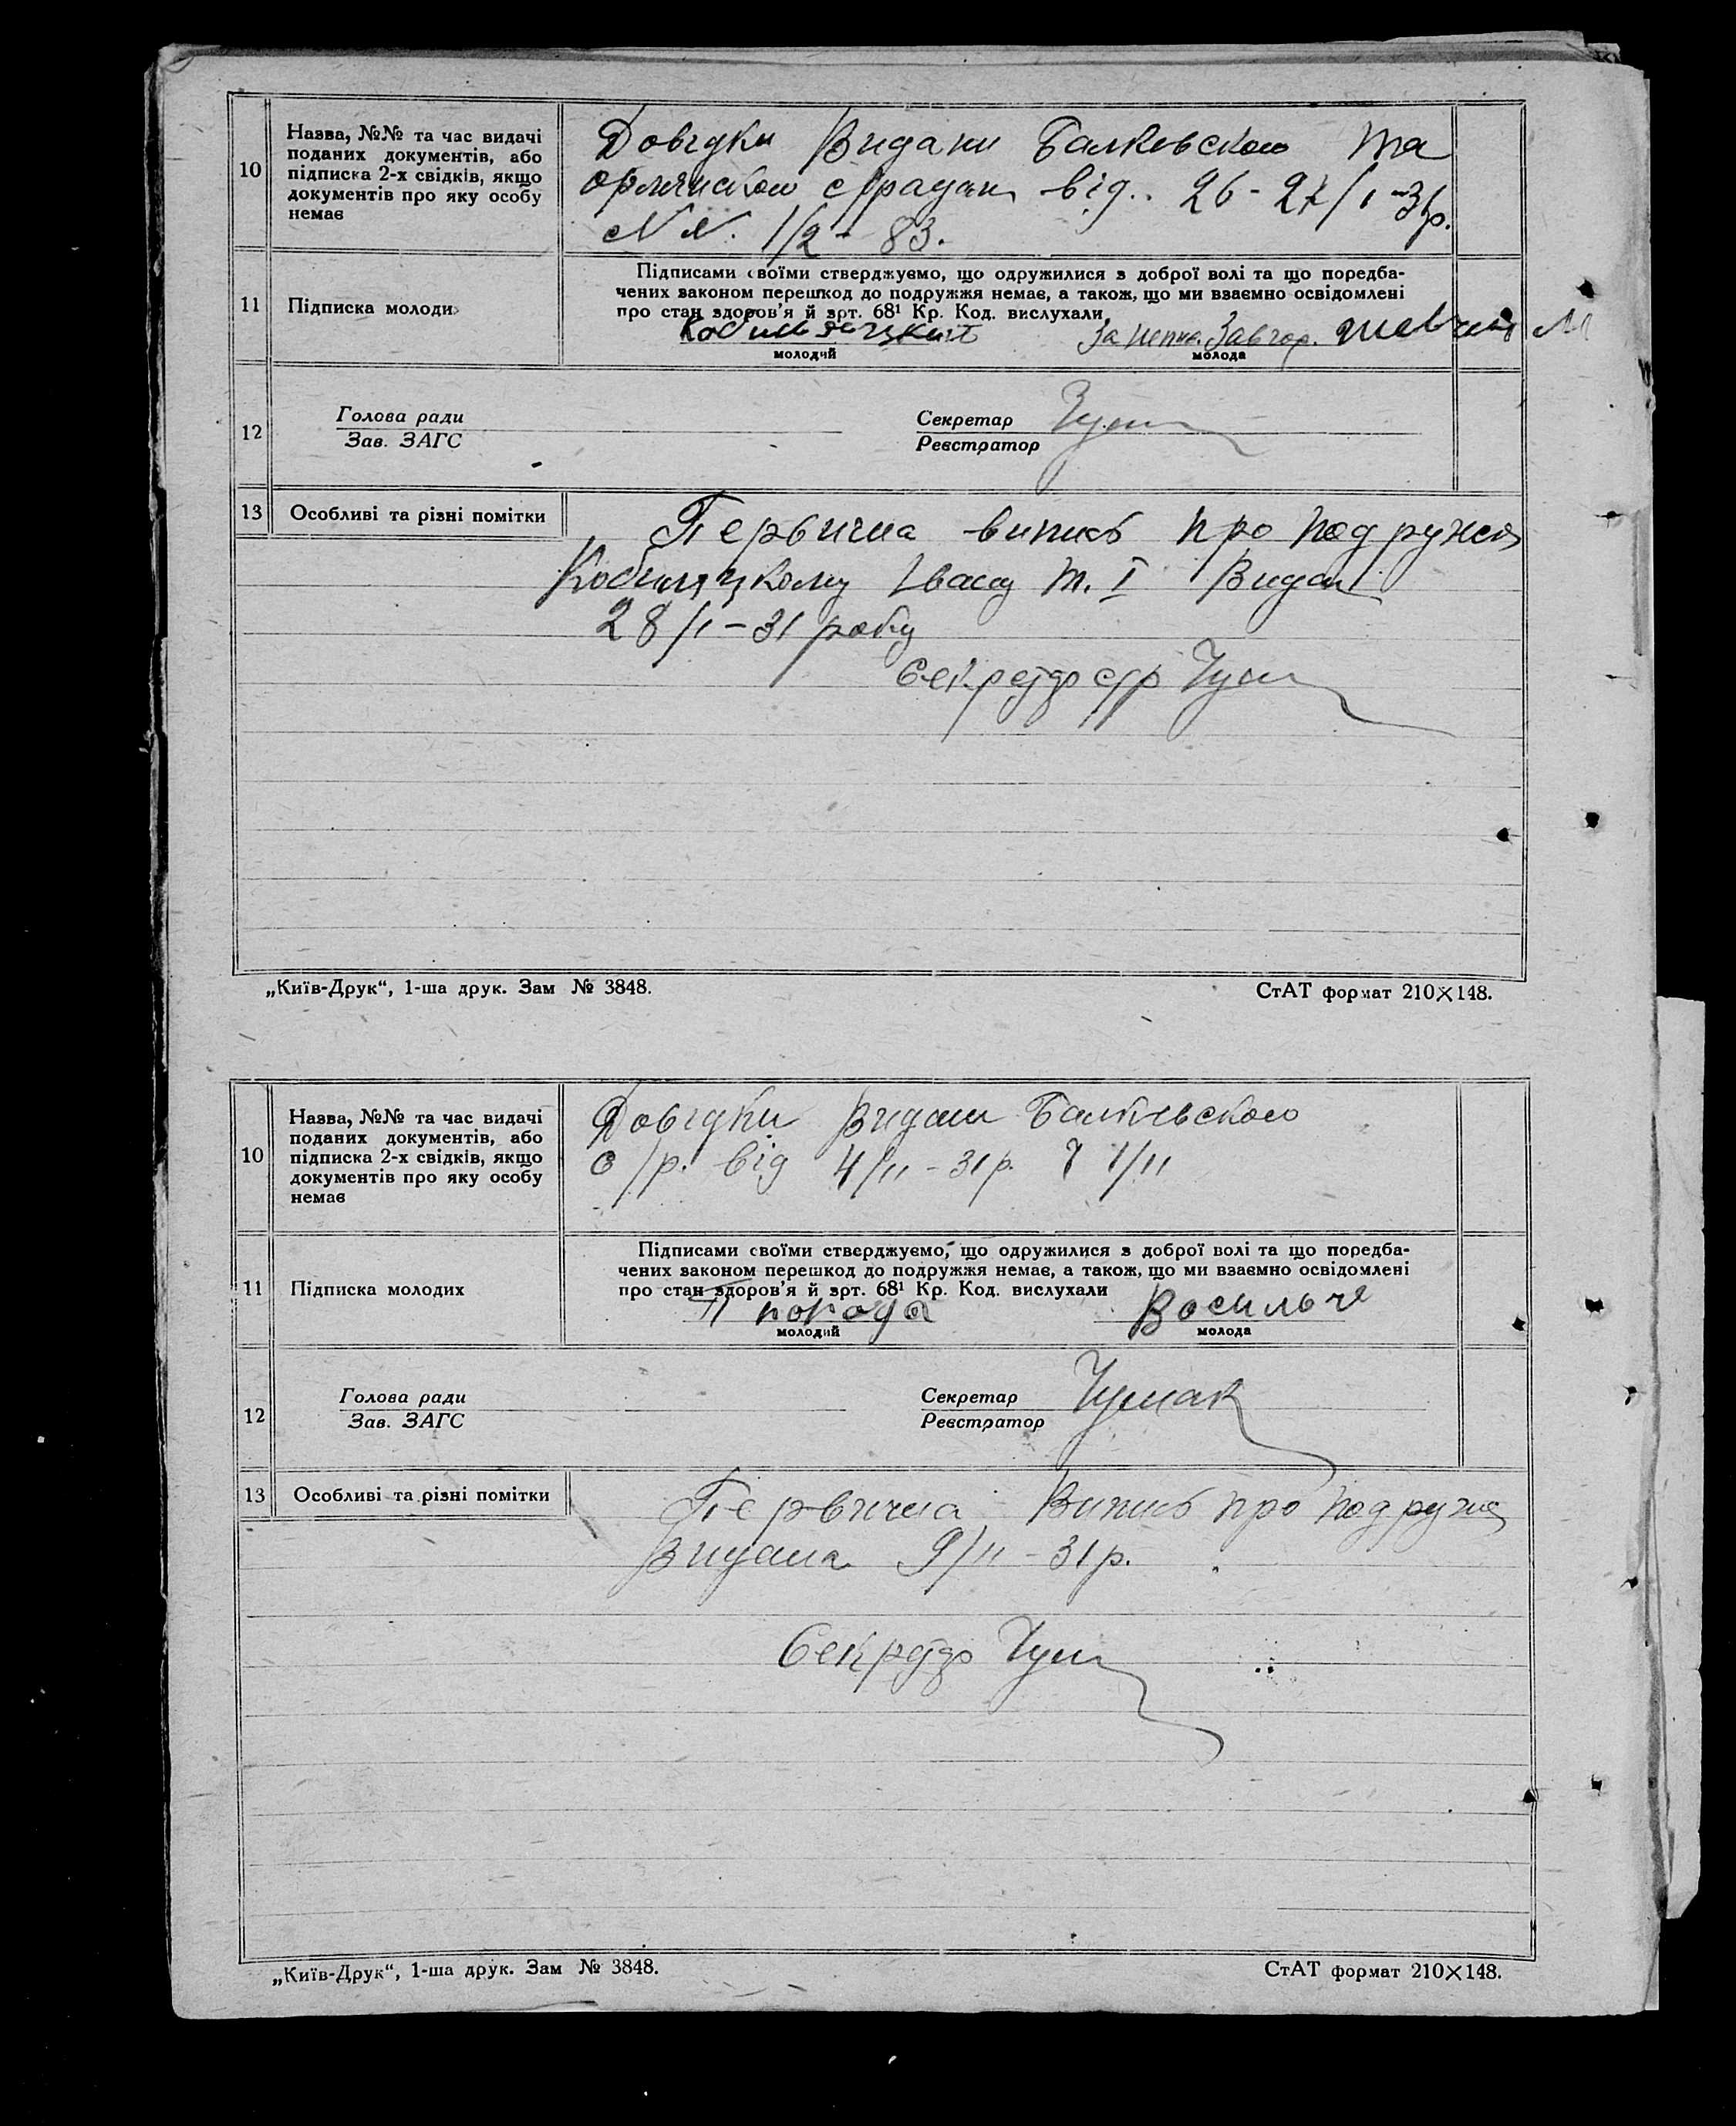 10
Назва, №№ та час видачі
поданих документів, або
підписка 2-х свідків, якщо
документів про яку особу
немає
Довідки Видани Балковською та
сградами від.. 26-27/1-31р.
NN. 1/2 - 83.
11
Підписка молодих
Підписами своїми стверджуємо, що одружилися з доброї волі та що передба-
чених законом перешкод до подружжя немає, а також, що ми взаємно освідомлені
про стан здоров'я й арт. 68¹ Кр. Код. вислухали
молодий
молода
12
Голова ради
Зав. ЗАГС
Секретар
Реєстратор
13
Особливі та різні помітки
Первична випись про подружжя
Кобиляцкому Івану т. I Видан
28/1-31 року
Секретар с/р Чум
„Київ-Друк“, 1-ша друк. Зам № 3848.
СтАТ формат 210×148.
10
Назва, №№ та час видачі
поданих документів, або
підписка 2-х свідків, якщо
документів про яку особу
немає
Довідки Видани Балківського
с/р. від 4/II-31р. 7/II
11
Підписка молодих
Підписами своїми стверджуємо, що одружилися з доброї волі та що передба-
чених законом перешкод до подружжя немає, а також, що ми взаємно освідомлені
про стан здоров'я й арт. 68¹ Кр. Код. вислухали
молодий
Васильче
молода
12
Голова ради
Зав. ЗАГС
Секретар Чумак
Реєстратор
13
Особливі та різні помітки
Первична Випись про подружжя
Видана 9/II-31р.
Секретар Чум
„Київ-Друк“, 1-ша друк. Зам № 3848.
СтАТ формат 210×148.